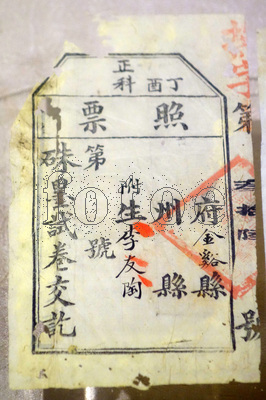 丁酉
正科
照票
府金谿縣
州縣
附生李友陶
第號
硃墨試卷交訖
第
號